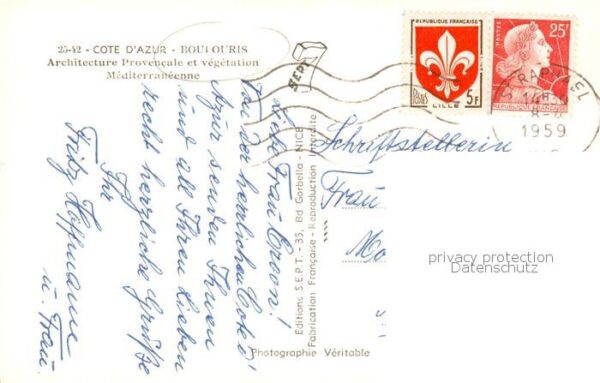 25-42 - COTE D'AZUR - BOULOURIS
Architecture Provençale et végétation
Méditerranéenne
SEPT
REPUBLIQUE FRANÇAISE
Postes
LILLE
5F
25F
POSTES
REPUBLIQUE FRANÇAISE
RAPHAEL
8-4
1959
Liebe Frau
Von der herrlichen Cote d'
Azur senden Ihnen
und all Ihren Lieben
recht herzliche Grüße
Ihr
Fritz Hoffmann
u Frau.
Editions S.E.P.T. - 35, Bd Gorbella - NICE
Fabrication Française - Reproduction Interdite
Photographie Véritable
Schriftstellerin
Frau
Mo
privacy protection
Datenschutz